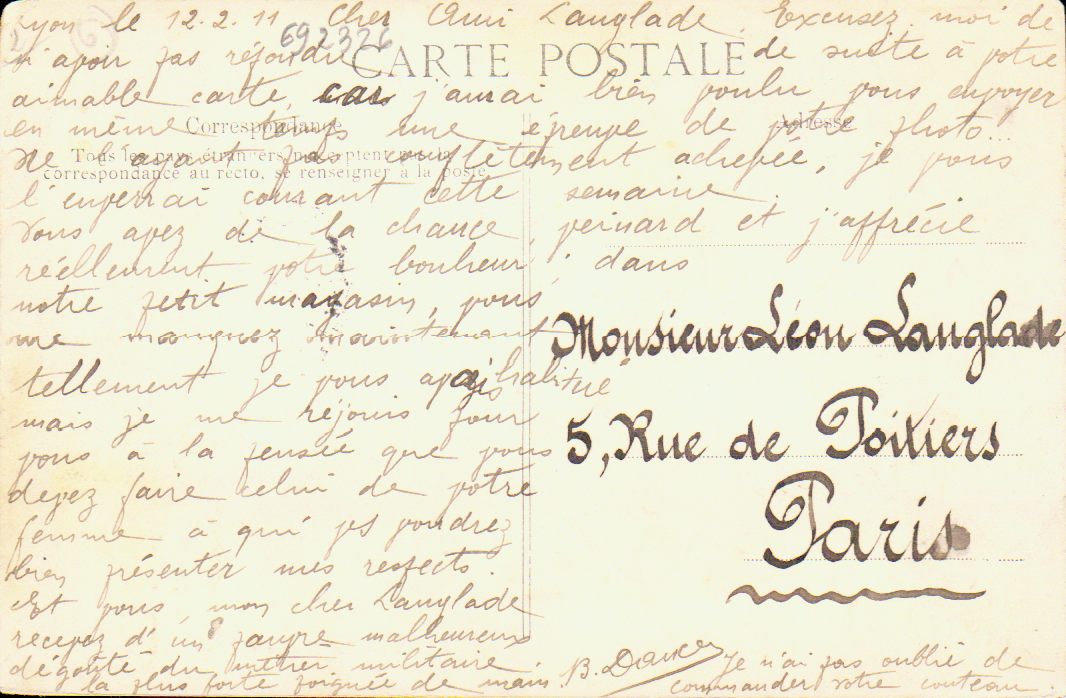 Lyon le 12.2.11 Cher Ami Langlade. Excusez moi de
n'avoir pas répondu de suite à votre
692326
CARTE POSTALE
aimable carte, car j'aurai bien voulu vous envoyer
en même temps une épreuve de photo...
Correspondance
Adresse
ne l'ayant pas complètement achevée, je vous
Tous les pays étrangers n'acceptent pas la
correspondance au recto, se renseigner à la poste
l'enverrai courant cette semaine.
Vous avez de la chance, veinard et j'apprécie
réellement votre bonheur ; dans
notre petit magasin, vous
me manquez maintenant
tellement je vous avais habitué
mais je me réjouis pour
vous à la pensée que vous
devez faire celui de votre
femme à qui vs voudrez
bien présenter mes respects.
Et vous, mon cher Langlade
recevez d'un pauvre malheureux
dégouté du métier militaire
la plus forte poignée de main.
Je n'ai pas oublié de
commander votre couteau.
Monsieur Léon Langlade
5, Rue de Poitiers
Paris